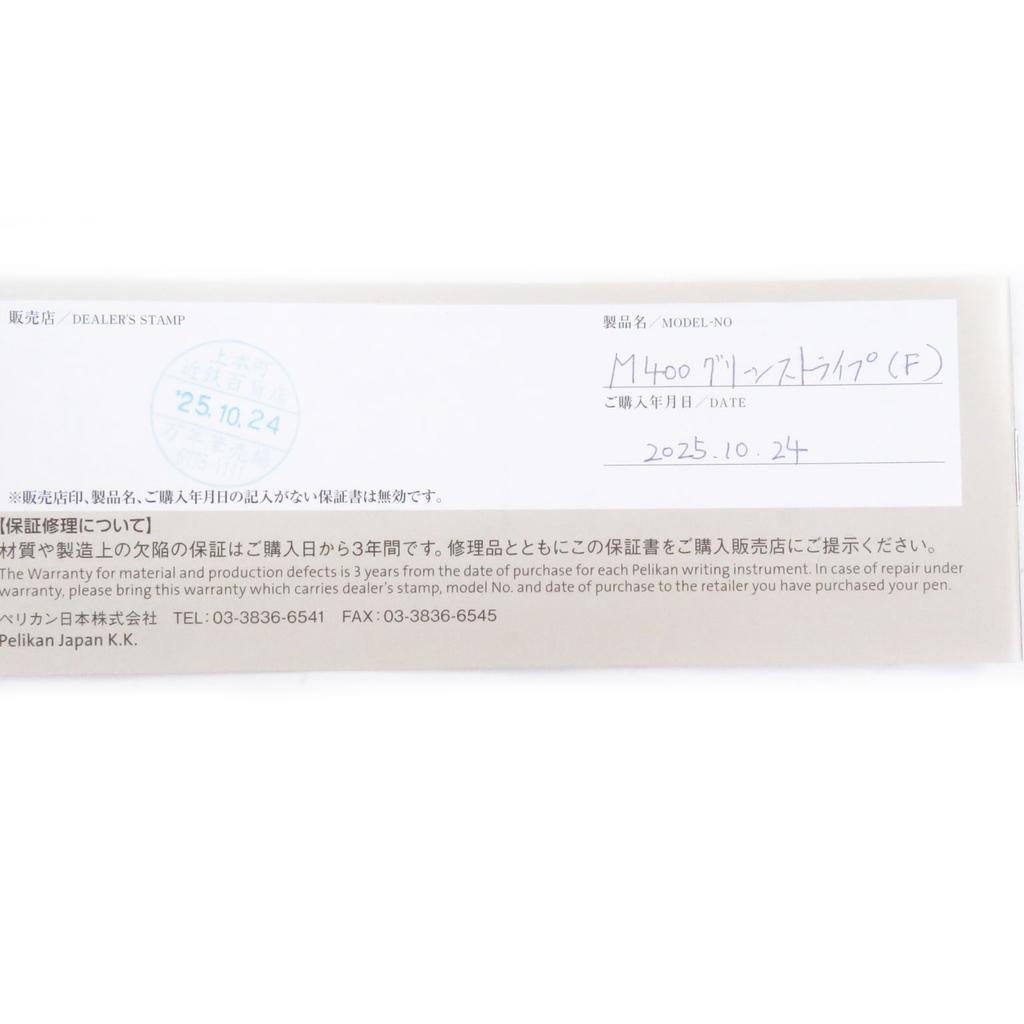 販売店/DEALER'S STAMP
上本町
近鉄百貨店
'25.10.24
万年筆売場
製品名/MODEL-NO
M400 グリーンストライプ(F)
ご購入年月日/DATE
2025.10.24
※販売店印、製品名、ご購入年月日の記入がない保証書は無効です。
【保証修理について】
材質や製造上の欠陥の保証はご購入日から3年間です。修理品とともにこの保証書をご購入販売店にご提示ください。
The Warranty for material and production defects is 3 years from the date of purchase for each Pelikan writing instrument. In case of repair under
warranty, please bring this warranty which carries dealer's stamp, model No. and date of purchase to the retailer you have purchased your pen.
ペリカン日本株式会社 TEL:03-3836-6541 FAX:03-3836-6545
Pelikan Japan K.K.